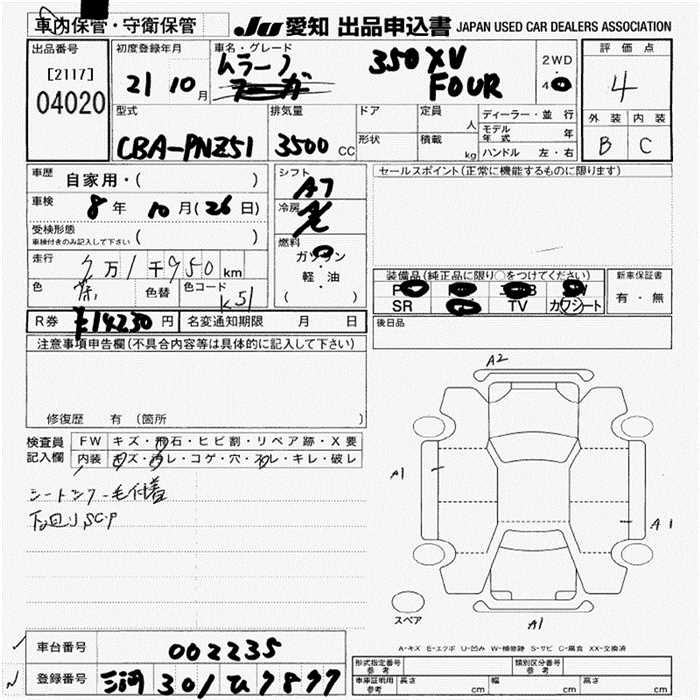 車内保管・守衛保管 JU 愛知 出品申込書 JAPAN USED CAR DEALERS ASSOCIATION
出品番号 初度登録年月 車名・グレード 評価点
[2117] 21 10月 ムラーノ 350XV FOUR 2WD 4
04020 4
型式 排気量 ドア 定員 人 ディーラー・並行 外装 内装
CBA-PNZ51 3500cc 形状 積載 kg モデル年式 年 B C
ハンドル 左・右
車歴 自家用・( ) シフト A7 セールスポイント(正常に機能するものに限ります)
車検 8年 10月(26日) 冷房
受検形態 車検付きのみ記入して下さい ( ) 燃料
走行 7万1千950km ガソリン
軽・油
( )
装備品(純正品に限り○をつけてください) 新車保証書
SR TV カワシート 有・無
色 色替 色コード K51
R券 ¥14230円 名変通知期限 月 日 後日品
注意事項申告欄(不具合内容等は具体的に記入して下さい)
修復歴 有 (箇所 )
検査員記入欄 FW キズ・飛石・ヒビ割・リペア跡・X要
内装 キズ・コゲ・穴・スレ・キレ・破レ
下回りSCP
A2
A1
A1
A1
スペア
A-キズ E-エクボ U-凹み W-補修跡 S-サビ C-腐食 XX-交換済
車台番号 002235
登録番号 三河 301 ひ 7877
形式指定番号 参考 類別区分番号 参考
車庫証明用 参考 長さ cm 幅 cm 高さ cm